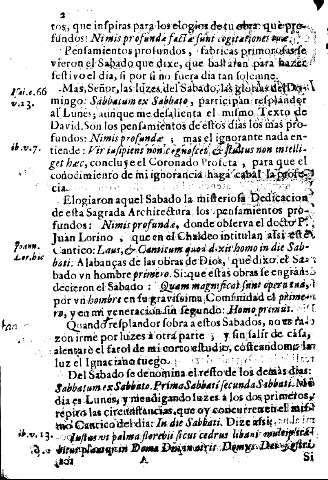 2
tos, que inspiras para los elogios de tu obra que pro-
fundos: Nimis profundæ factæ sunt cogitationes tuæ.
Pensamientos profundos, fabricas primorosas se
vieron el Sabado que dixe, que bastaran para hazer
festivo el dia, si por si no fuera dia tan solemne.
Mas, Señor, las luzes del Sabado, las glorias del Do-
mingo: Sabbatum ex Sabbato, participan resplandor
al Lunes; aunque me desalienta el mismo Texto de
David. Son los pensamientos de estos dias los mas pro-
fundos: Nimis profundæ; mas el ignorante nada en-
tiende: Vir insipiens non cognoscet, & stultus non intelli-
get hæc, concluye el Coronado Profeta, para que el
conocimiento de mi ignorancia haga cabal la profe-
cia.
Elogiaron aquel Sabado la misteriosa Dedicacion
de esta Sagrada Architectura los pensamientos pro-
fundos: Nimis profundæ, donde observa el docto P.
Juan Lorino, que en el Chaldeo intitulan assi este
Cantico: Laus, & Canticum quod dixit homo in die Sab-
bati: Alabanças de las obras de Dios, que dixo el Sa-
bado vn hombre primero. Si: que estas obras se engran-
decieron el Sabado: Quam magnificat sunt opera tua,
por vn hombre en su gravissima Comunidad el prime-
ro, y en mi veneracion sin segundo: Homo primus.
Quando resplandor sobra a estos Sabados, no es ra-
zon irme por luzes à otra parte; y sin salir de casa,
alentarè el farol de mi corto estudio, costeandome la
luz el Ignaciano fuego.
Del Sabado se denomina el resto de los demàs dias:
Sabbatum ex Sabbato. Prima Sabbati secunda Sabbati. Mi
dia es Lunes, y mendigando luzes a los dos primeros,
repito las circunstancias, que oy concurren en el mis-
mo Cantico del dia: In die Sabbati. Dize assi:
Justus vt palma florebit sicut cedrus libani
in Domo Domini
A
Si
v.13.
ib.v.7.
Joann.
Lor.hic
ib.v.13.